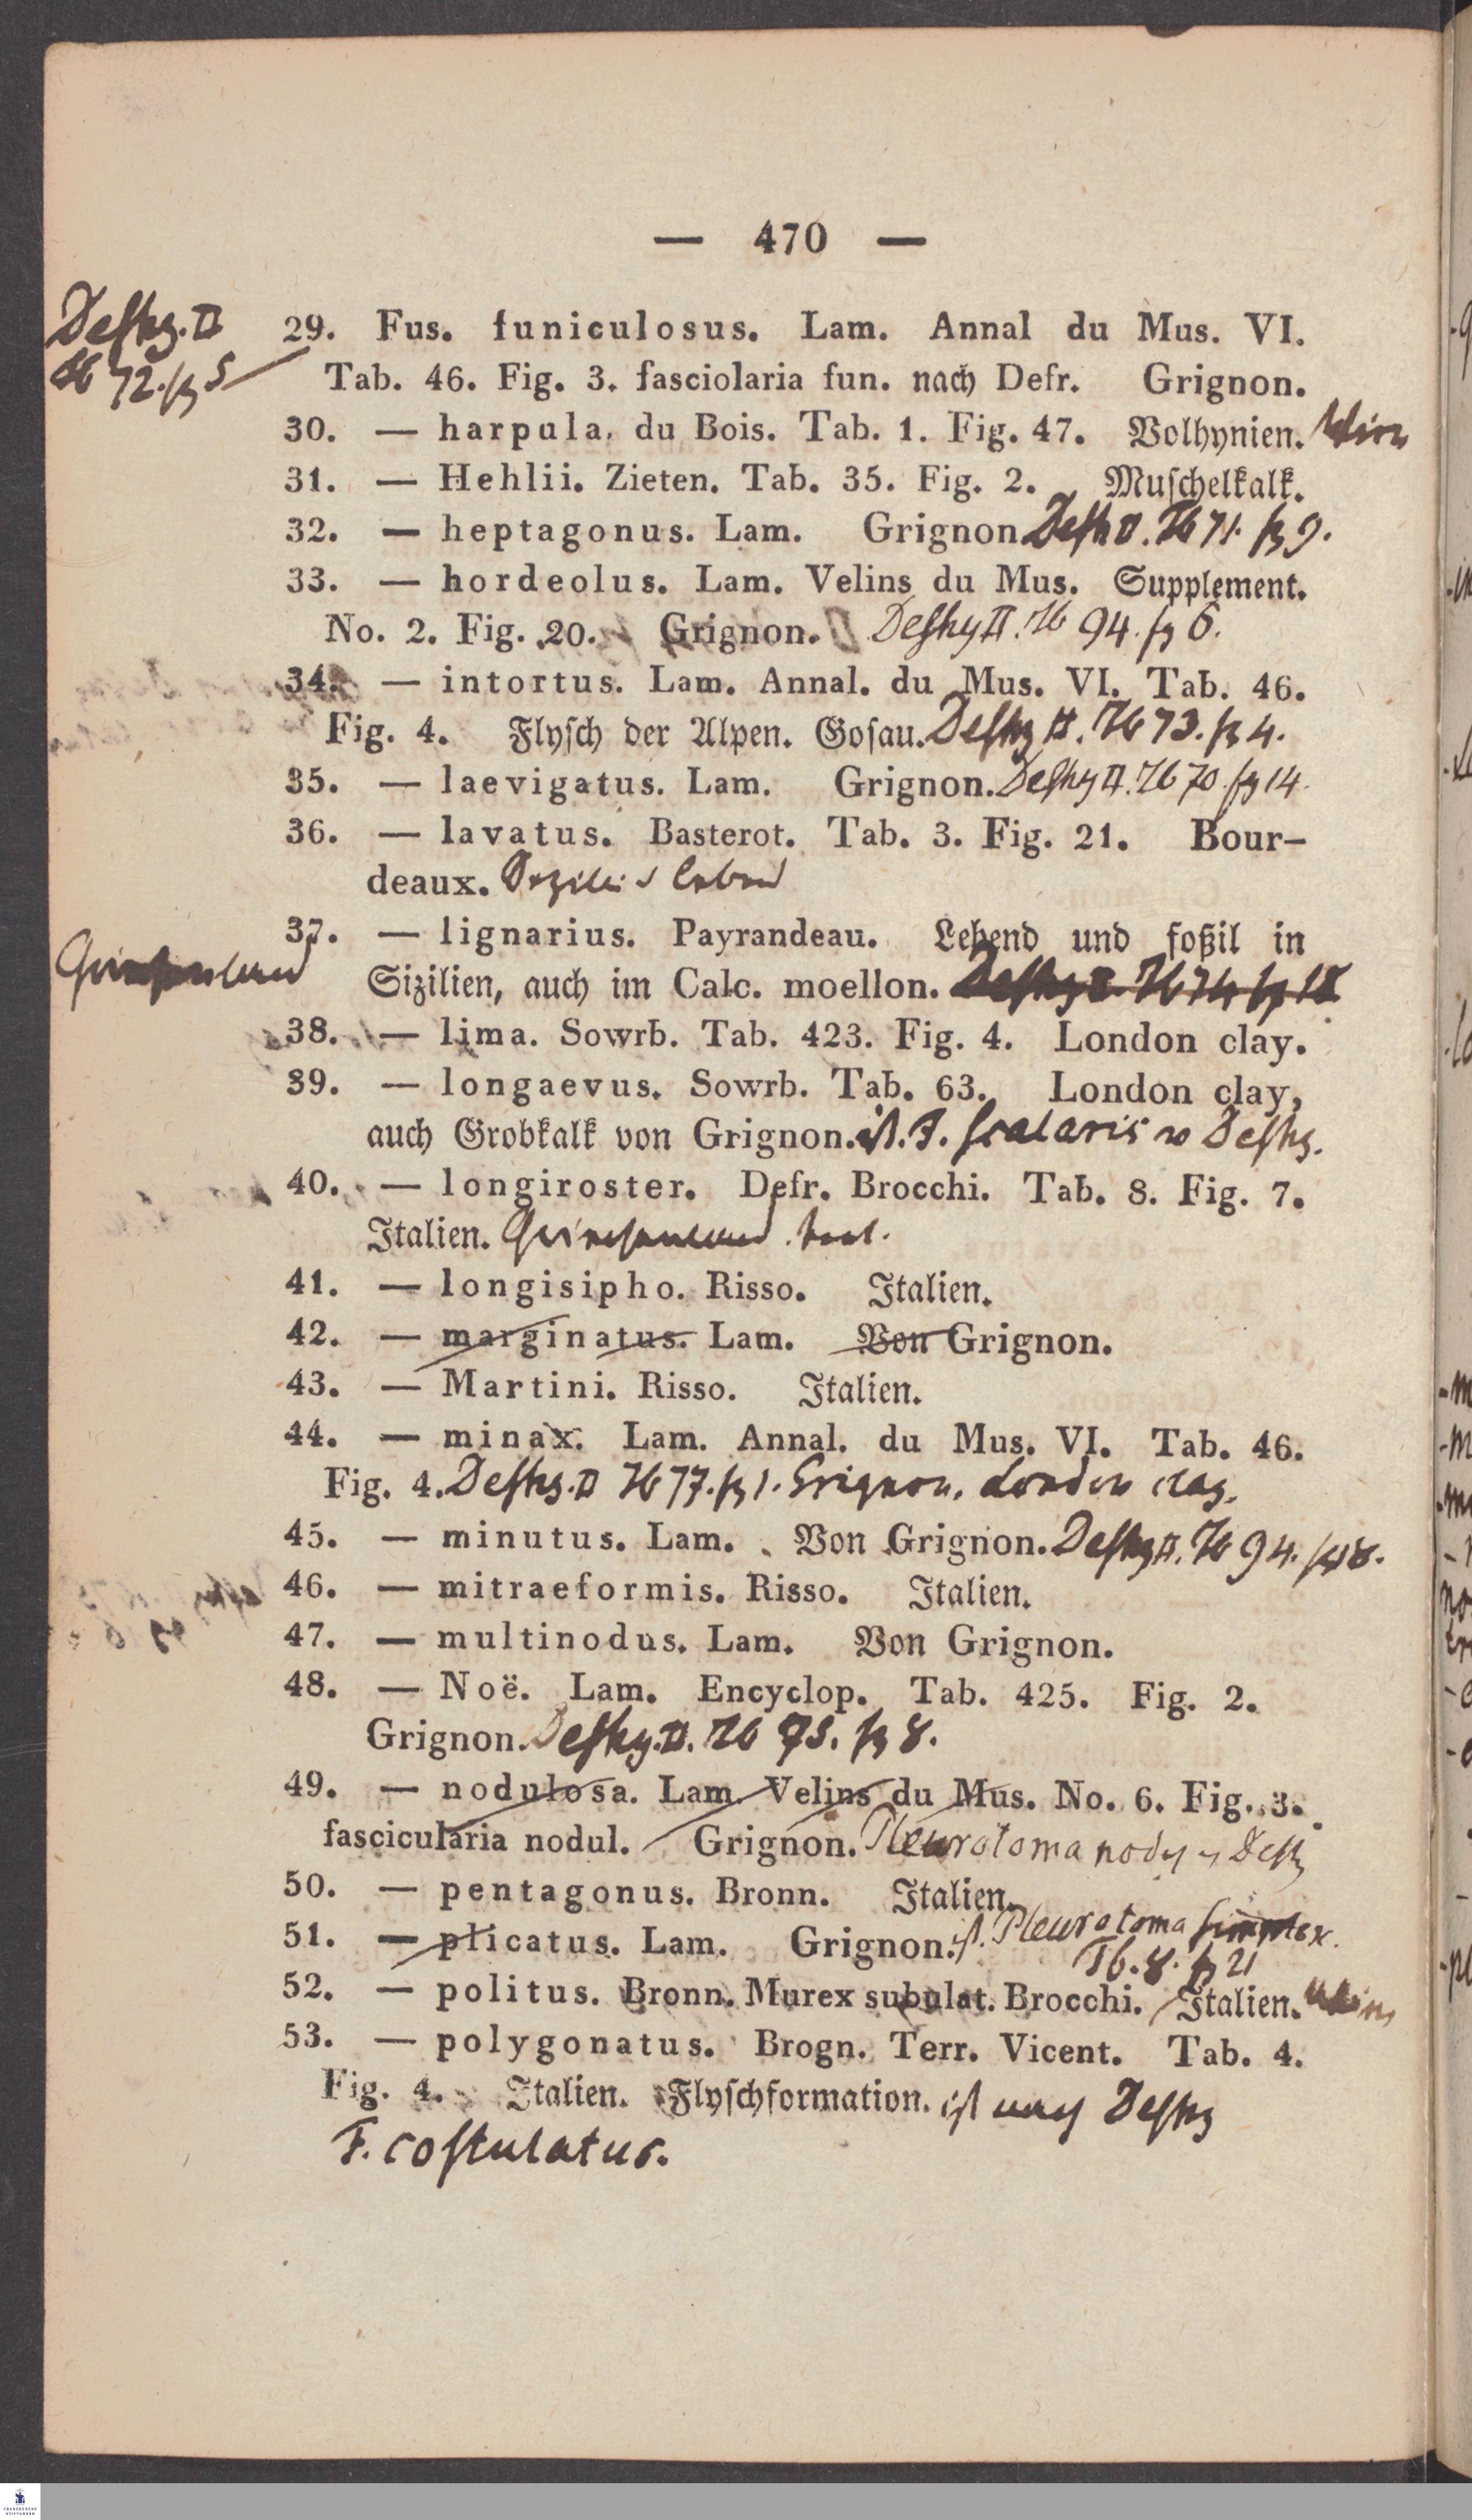 — 470 —
Deshy. II
Tb 72. fg 5
29. Fus. funiculosus. Lam. Annal du Mus. VI.
Tab. 46. Fig. 3. fasciolaria fun. nach Defr. Grignon.
30. — harpula. du Bois. Tab. 1. Fig. 47. Volhynien.
31. — Hehlii. Zieten. Tab. 35. Fig. 2. Muschelkalk.
32. — heptagonus. Lam. Grignon Desh II. Tb 71. fg 9.
33. — hordeolus. Lam. Velins du Mus. Supplement.
No. 2. Fig. 20. Grignon. Deshy II. Tb 94. fg 6.
34. — intortus. Lam. Annal. du Mus. VI. Tab. 46.
Fig. 4. Flysch der Alpen. Gosau. Deshy II. Tb 73. fg 4.
35. — laevigatus. Lam. Grignon. Deshy II. Tb 70. fg 14.
36. — lavatus. Basterot. Tab. 3. Fig. 21. Bour-
deaux.
37. — lignarius. Payrandeau. Lebend und foßil in
Griechenland
Sizilien, auch im Calc. moellon. Deshy II. Tb 74 fg 18
38. — lima. Sowrb. Tab. 423. Fig. 4. London clay.
39. — longaevus. Sowrb. Tab. 63. London clay,
auch Grobkalk von Grignon. ist. F. scalaris Deshy.
40. — longiroster. Defr. Brocchi. Tab. 8. Fig. 7.
Italien. Griechenland.
41. — longisipho. Risso. Italien.
42. — marginatus. Lam. Von Grignon.
43. — Martini. Risso. Italien.
44. — minax. Lam. Annal. du Mus. VI. Tab. 46.
Fig. 4. Deshy. II Tb 77. fg 1. Grignon. London clay.
45. — minutus. Lam. Von Grignon. Deshy II. Tb 94. fg 18.
46. — mitraeformis. Risso. Italien.
47. — multinodus. Lam. Von Grignon.
48. — Noë. Lam. Encyclop. Tab. 425. Fig. 2.
Grignon. Deshy. II. Tb 75. fg 8.
49. — nodulosa. Lam. Velins du Mus. No. 6. Fig. 3.
fascicularia nodul. Grignon. Pleurotoma Desh
50. — pentagonus. Bronn. Italien.
51. — plicatus. Lam. Grignon. ist. Pleurotoma simplex.
Tb. 8. fg 21
52. — politus. Bronn. Murex subulat. Brocchi. Italien.
53. — polygonatus. Brogn. Terr. Vicent. Tab. 4.
Fig. 4. Italien. Flyschformation. ist nach Deshy
F. costulatus.